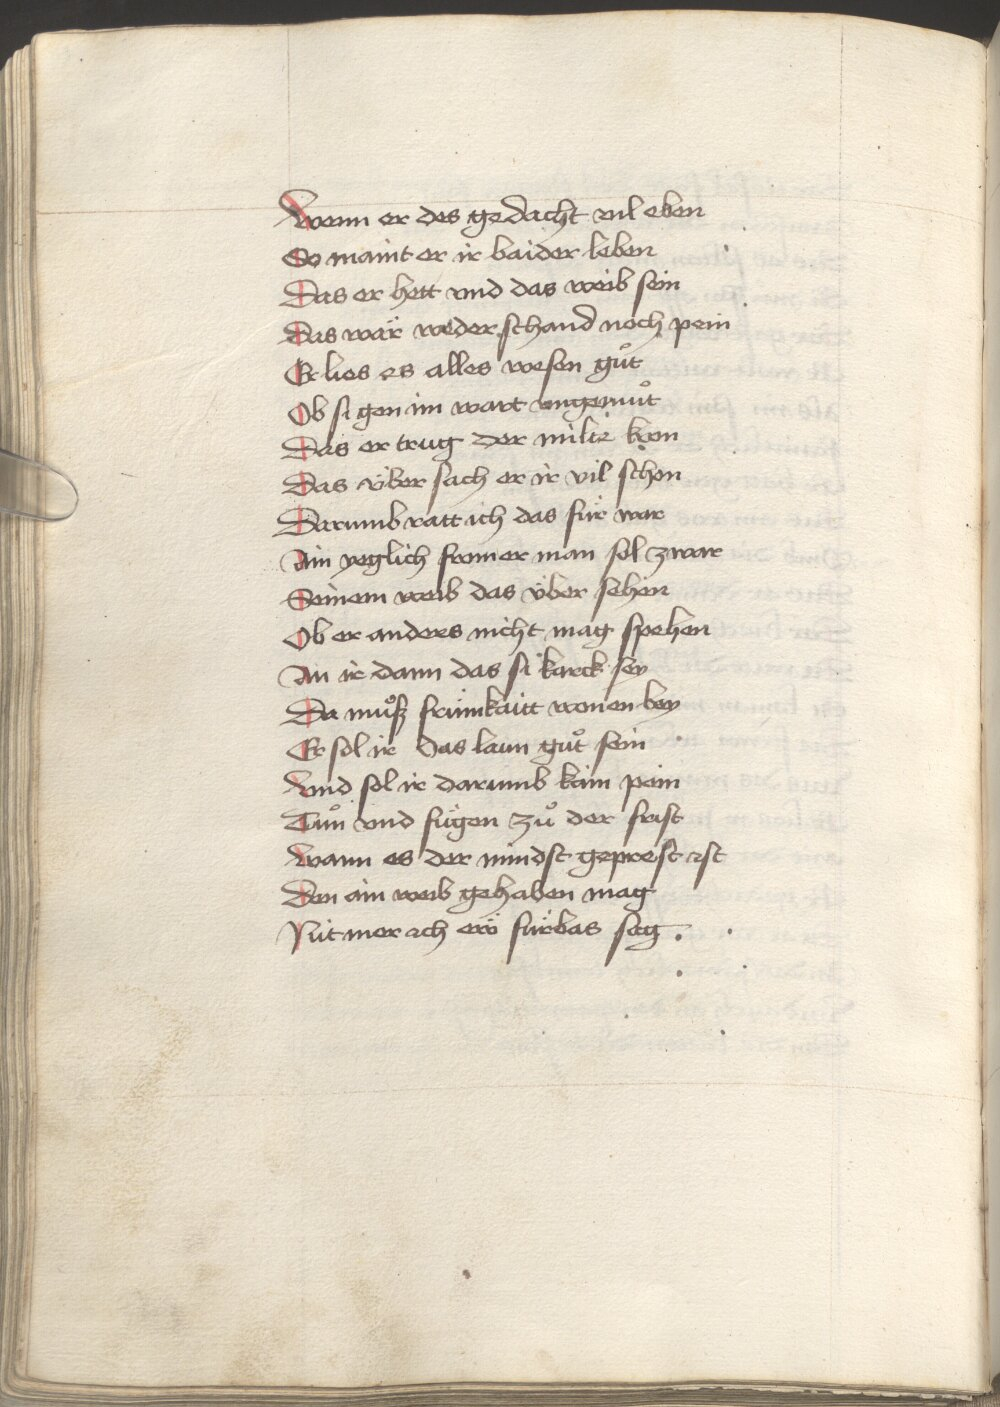 Wenn er des gedacht vil eben
So maint er ir baider leben
Das er hett vnd das weib sein
Das wär weder schand noch pein
Er lies es alles wesen guͦt
Ob si gen im wart vngemuͦt
Das er trug der milte kron
Das über sach er ir vil schon
Darumb ratt ich das für war
Ain yeglich fromer man sol zwar
Seinem weib das über sehen
Ob er anders nicht mag spehen
An ir dann das si karck sey
Da muͦß frümkaitt wonen bey
Er sol ir das laun guͦt sein
Vnd sol ir darumb kain pein
Tuͦn vnd fügen zuͦ der frist
Wann es der mindst geprest ist
Den ain weib gehaben mag
Nit mer ich eẅ fürbas sag .